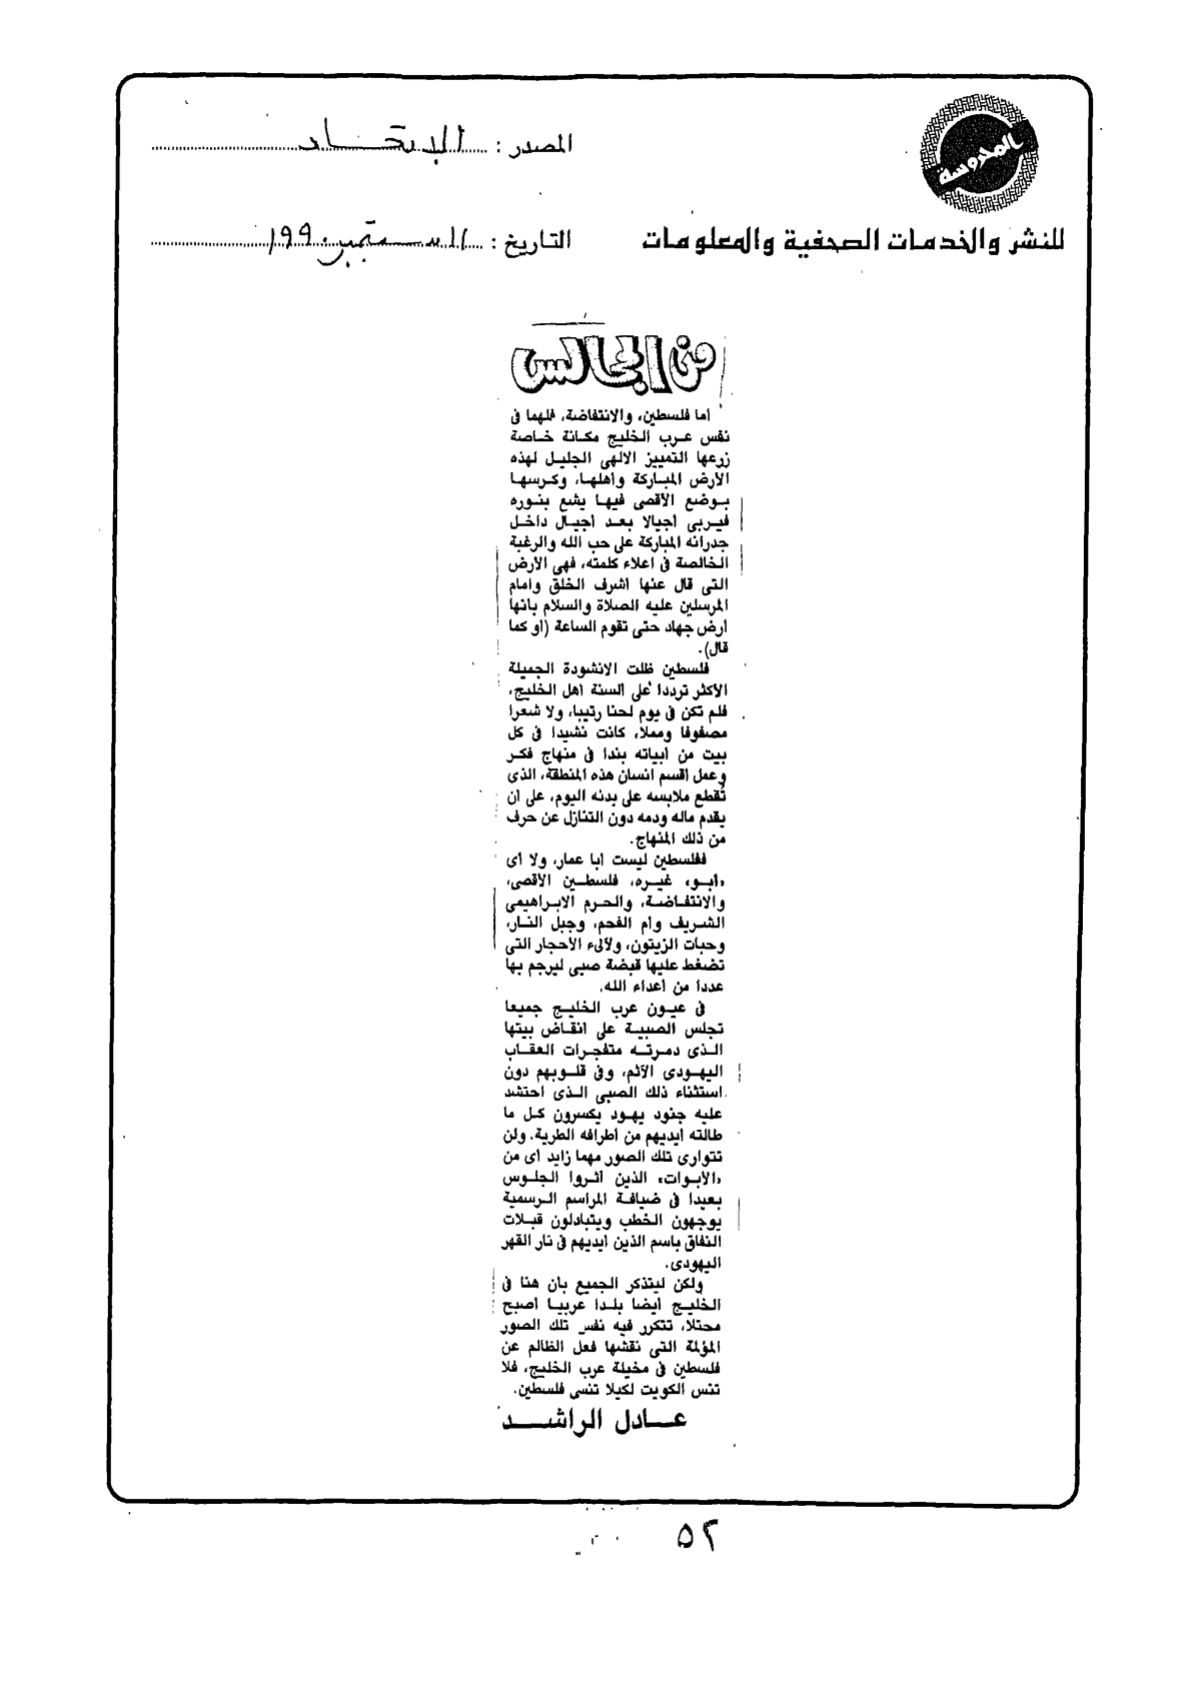 المحروسة
المصدر : الاتحاد
للنشر والخدمات الصحفية والمعلومات
التاريخ : ١١ سبتمبر ١٩٩٠
من المجالس
أما فلسطين، والانتفاضة، فلهما فى
نفس عرب الخليج مكانة خاصة
زرعها التمييز الالهى الجليل لهذه
الأرض المباركة وأهلها، وكرسها
بوضع الأقصى فيها يشع بنوره
فيربى أجيالا بعد أجيال داخل
جدرانه المباركة على حب الله والرغبة
الخالصة فى اعلاء كلمته، فهى الأرض
التى قال عنها أشرف الخلق وامام
المرسلين عليه الصلاة والسلام بأنها
أرض جهاد حتى تقوم الساعة (أو كما
قال).
فلسطين ظلت الانشودة الجميلة
الأكثر ترددا على السنة أهل الخليج،
فلم تكن فى يوم لحنا رتيبا، ولا شعرا
مصفوفا ومملا، كانت نشيدا فى كل
بيت من أبياته بندا فى منهاج فكر
وعمل أقسم انسان هذه المنطقة، الذى
تُقطع ملابسه على بدنه اليوم، على أن
يقدم ماله ودمه دون التنازل عن حرف
من ذلك المنهاج.
ففلسطين ليست أبا عمار، ولا أى
«أبو» غيره، فلسطين الأقصى،
والانتفاضة، والحرم الابراهيمى
الشريف وأم الفحم، وجبل النار،
وحبات الزيتون، ولآلىء الأحجار التى
تضغط عليها قبضة صبى ليرجم بها
عددا من أعداء الله.
فى عيون عرب الخليج جميعا
تجلس الصبية على انقاض بيتها
الذى دمرته متفجرات العقاب
اليهودى الآثم، وفى قلوبهم دون
استثناء ذلك الصبى الذى احتشد
عليه جنود يهود يكسرون كل ما
طالته أيديهم من أطرافه الطرية. ولن
تتوارى تلك الصور مهما زايد أى من
«الأبوات» الذين آثروا الجلوس
بعيدا فى ضيافة المراسم الرسمية
يوجهون الخطب ويتبادلون قبلات
النفاق باسم الذين أيديهم فى نار القهر
اليهودى.
ولكن ليتذكر الجميع بأن هنا فى
الخليج أيضا بلدا عربيا أصبح
محتلا، تتكرر فيه نفس تلك الصور
المؤلمة التى نقشها فعل الظالم عن
فلسطين فى مخيلة عرب الخليج، فلا
تنس الكويت لكيلا تنسى فلسطين.
عادل الراشد
٥٢